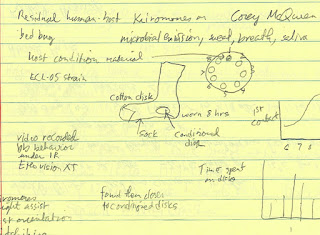 Residual human-host Kairomones on Corey McQueen
bed bug microbial emission, sweat, breath, saliva
Host condition material
ECL-05 strain
cotton disk
worn 8 hrs
sock
conditioned disk
1st contact
6 7 8
video recorded
bb behavior
under IR
EthoVision XT
Time spent on disks
found them closer
to conditioned disks